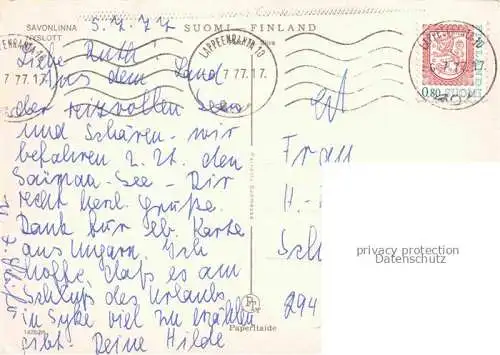 SAVONLINNA
NYSLOTT
SUOMI - FINLAND
5.7.77
LAPPEENRANTA 10
7 77.17.
LAPPEENRANTA 10
7 77.17.
LAPPEENRANTA 10
7 77.17.
0,80 SUOMI
Liebe Ruth
Aus dem Land
der reizvollen Seen
und Schären - wir
befahren z. Zt. den
Saimaa-See - Dir
recht herzl. Grüße.
Dank für lb. Karte
aus Ungarn. Ich
hoffe, daß es am
Schluß des Urlaubs
in Syke viel zu erzählen
gibt. Deine Hilde
Frau
H.-
Sch
294
privacy protection
Datenschutz
Paperitaide